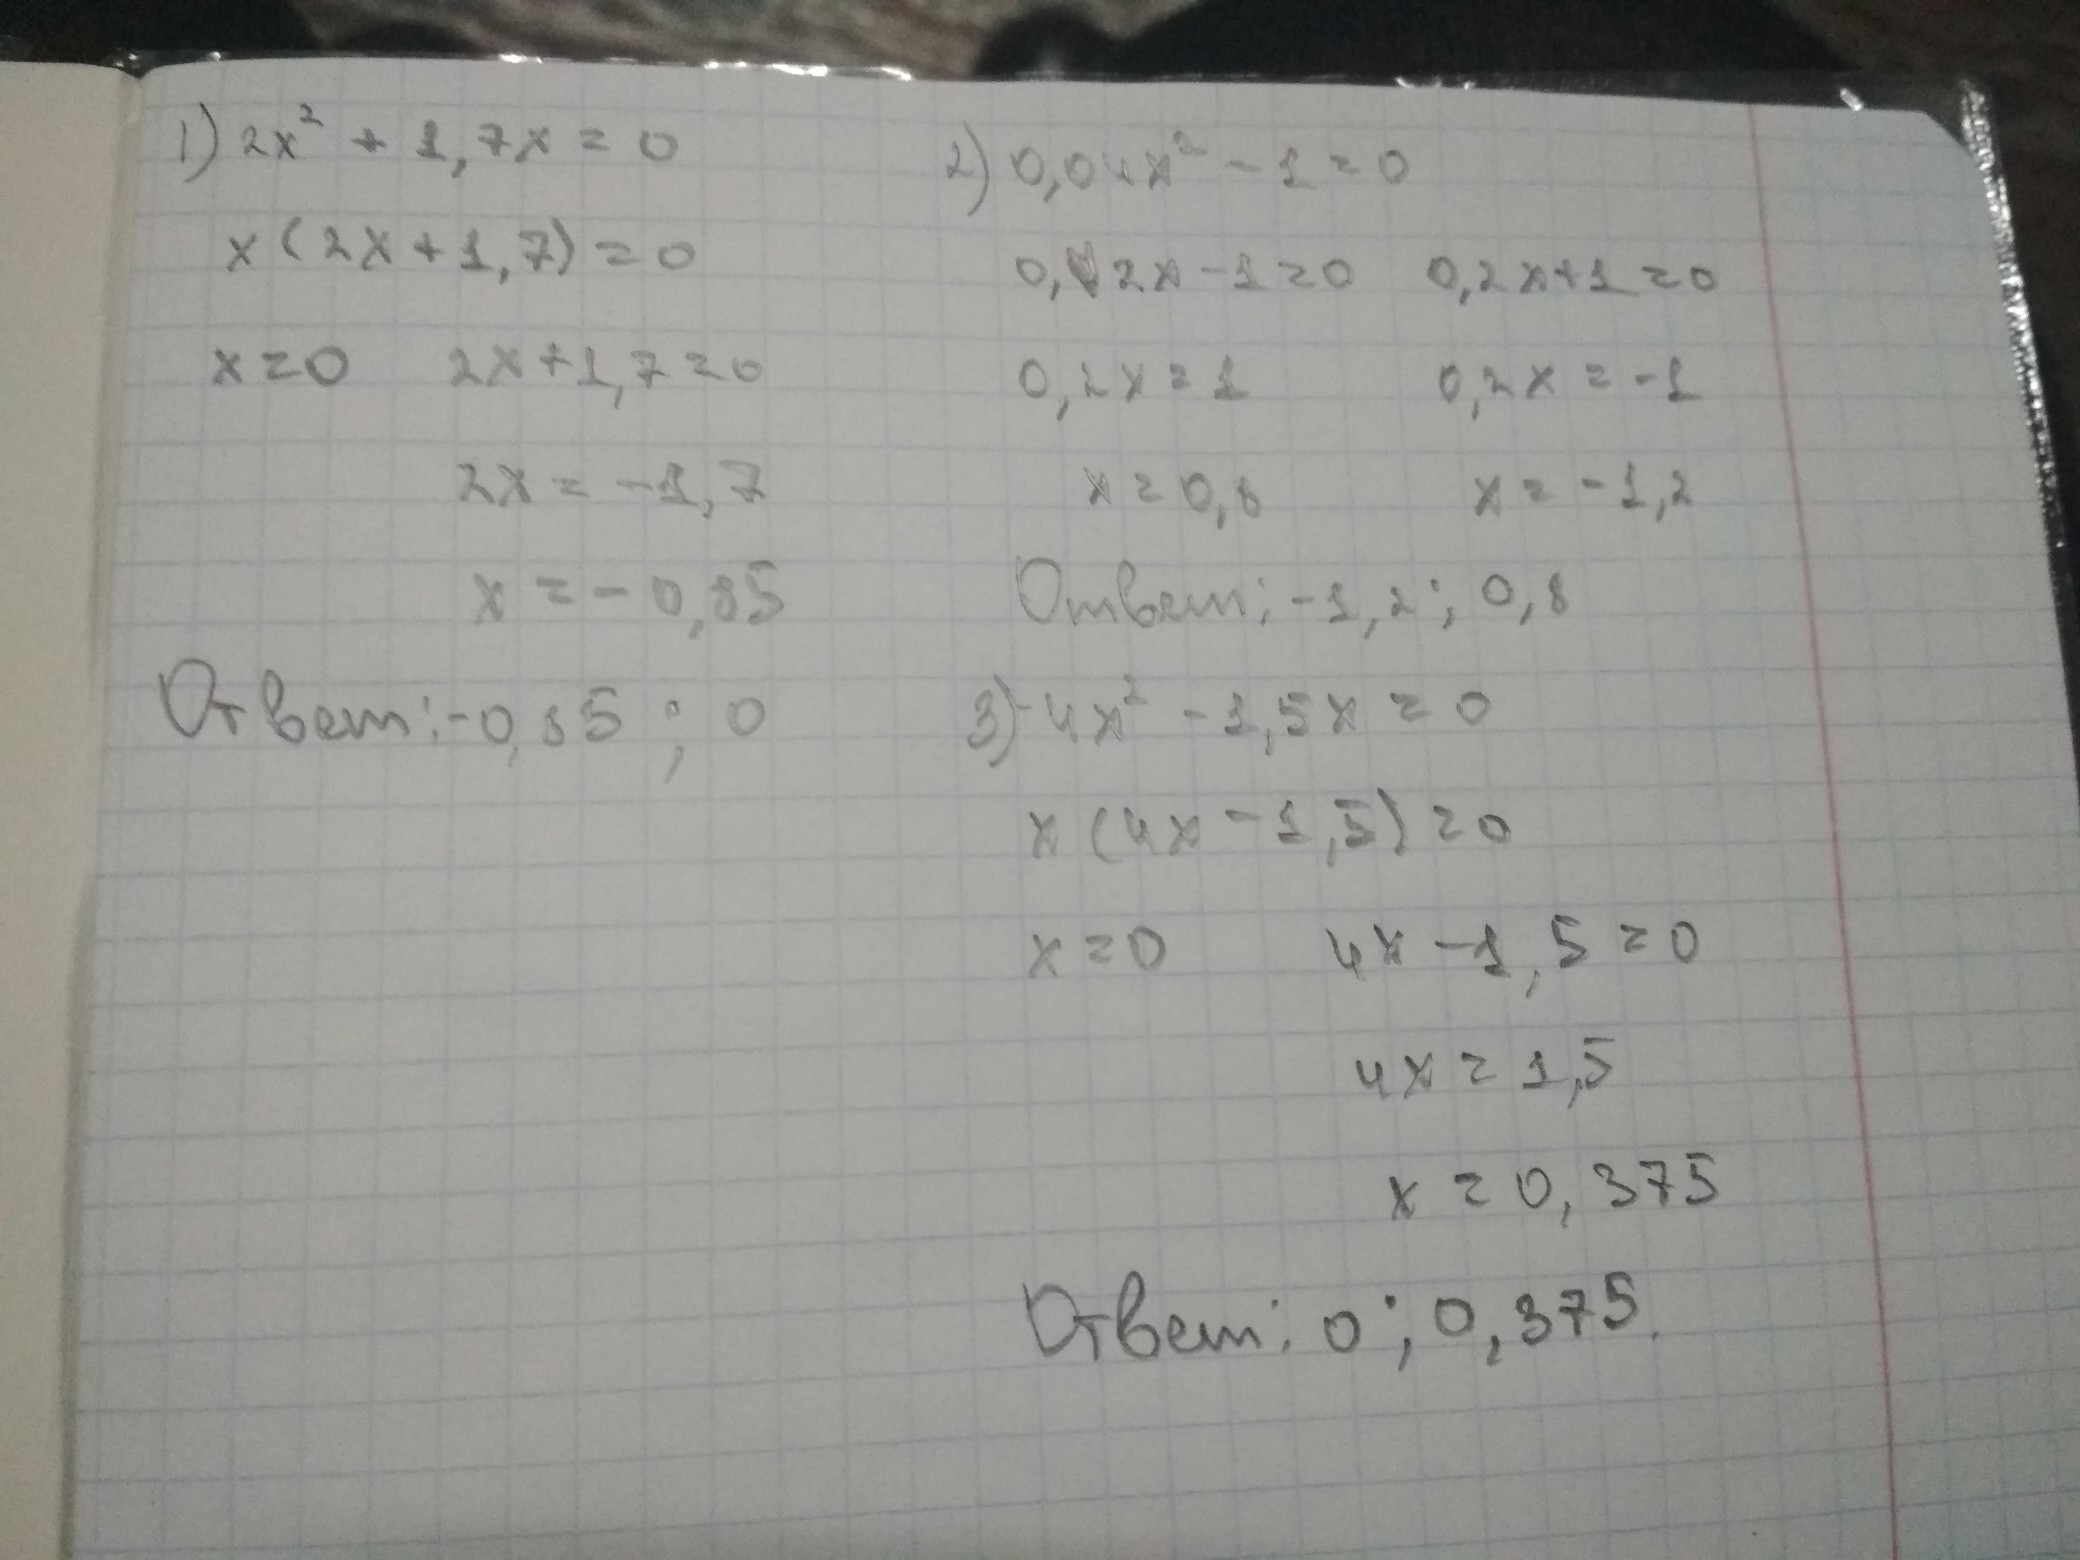 1) 2x² + 1,7x = 0
x(2x+1,7)=0
x=0 2x+1,7=0
2x = -1,7
x = -0,85
Ответ: -0,85 ; 0
2) 0,04x² - 1 = 0
0,2x - 1 = 0 0,2x+1=0
0,2x = 1 0,2x = -1
x = 0,8 x = -1,2
Ответ: -1,2 ; 0,8
3) 4x² - 1,5x = 0
x (4x - 1,5) = 0
x = 0 4x - 1,5 = 0
4x = 1,5
x = 0,375
Ответ: 0 ; 0,375.